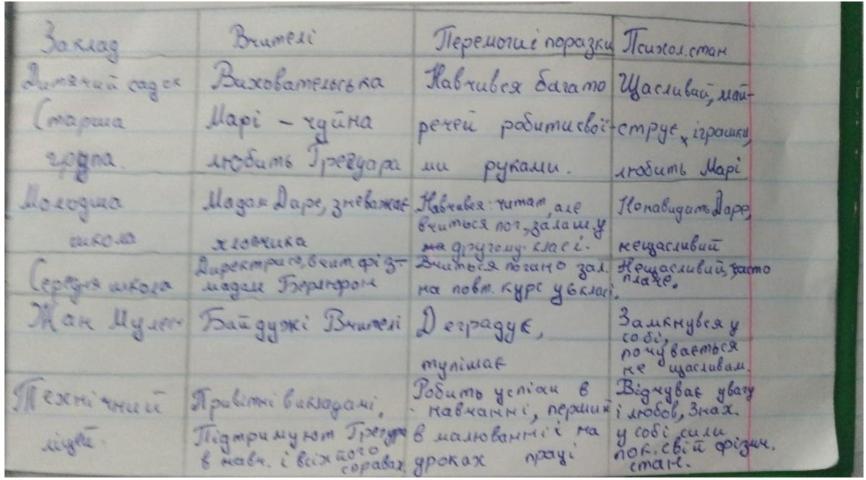 Заклад Вчителі Перемоги і поразки Психол. стан
Дитячий садок Вихователька Навчився багато Щасливий, май-
Старша Марі – чуйна речей робити свої- струє іграшки,
група. любить Грегуара ми руками. любить Марі
Молодша Мадам Даре, зневажає Навчився читат, але Ненавидить Даре,
школа хлопчика вчиться пог, залаш. у нещасливий
на другому класі.
Середня школа Директриса, вчит. фіз- Вчиться погано зал. Нещасливий, часто
мадам на повт. курс у 6 класі. плаче.
Жан Мулен Байдужі Вчителі Деградує, Замкнувся у
тупішає собі,
почувається
не щасливам.
Технічний Привітні викладачі, Робить успіхи в Відчуває увагу
ліцей. Підтримуют Грегуара навчанні, перший і любов, Знах.
в навч. і всіх його справах в малюванні і на у собі сили
уроках праці пок. свій фізич.
стан.